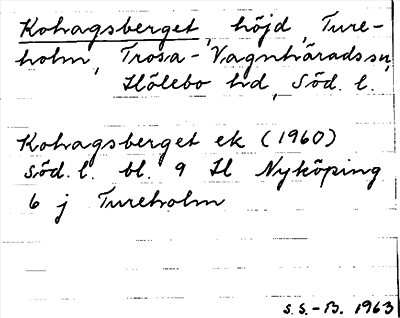 Kohagsberget, höjd, Ture-
holm, Trosa-Vagnhärads sn,
Hölebo hd, Söd. l.
Kohagsberget ek (1960)
Söd. l. bl. 9 H Nyköping
6 j Tureholm
S.S.-B. 1963